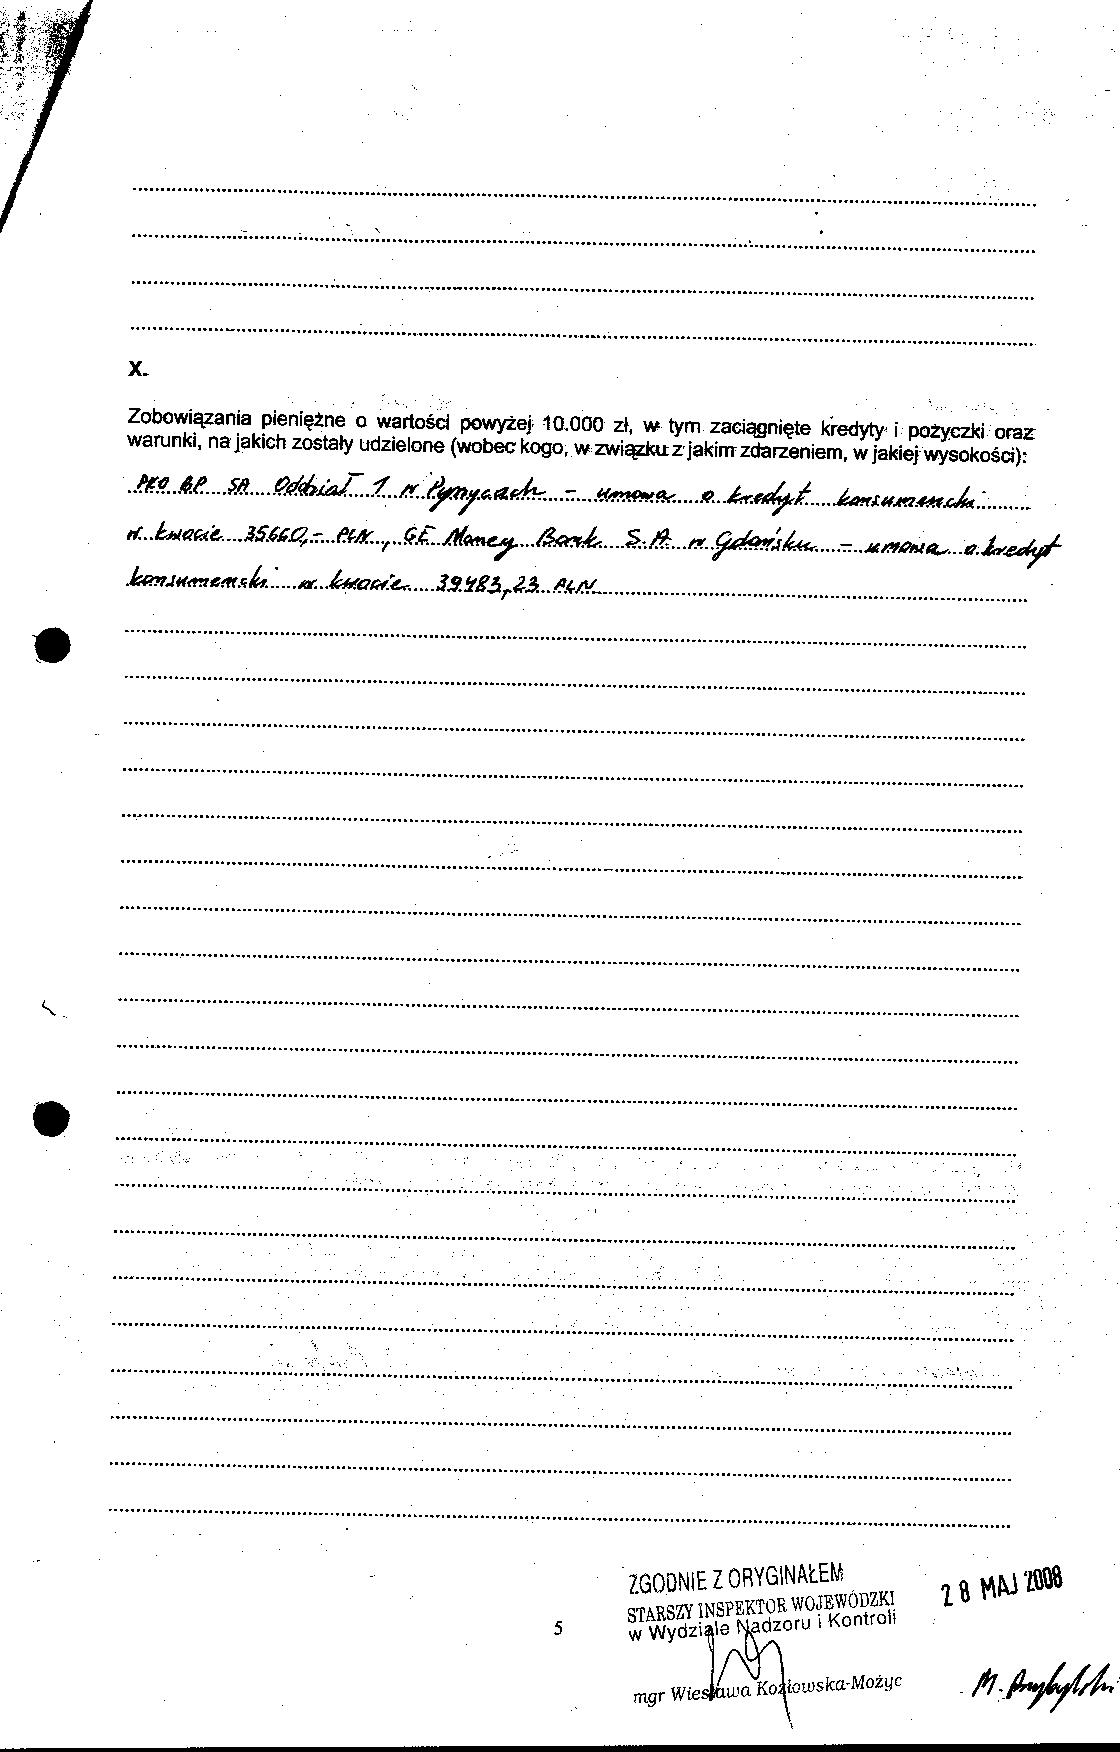 X.
Zobowiązania pieniężne o wartości powyżej 10.000 zł, w tym zaciągnięte kredyty i pożyczki oraz
warunki, na jakich zostały udzielone (wobec kogo, w związku z jakim zdarzeniem, w jakiej wysokości):
PKO BP SA Oddział 1 w Pyrzycach - umowa o kredyt konsumencki
w kwocie 35660,- PLN, GE Money Bank S.A. w Gdańsku - umowa o kredyt
konsumencki w kwocie 39483,23 PLN
ZGODNIE Z ORYGINAŁEM
28 MAJ 2008
STARSZY INSPEKTOR WOJEWÓDZKI
w Wydziale Nadzoru i Kontroli
5
mgr Wiesława Koziowska-Możyc
M. Przybylski